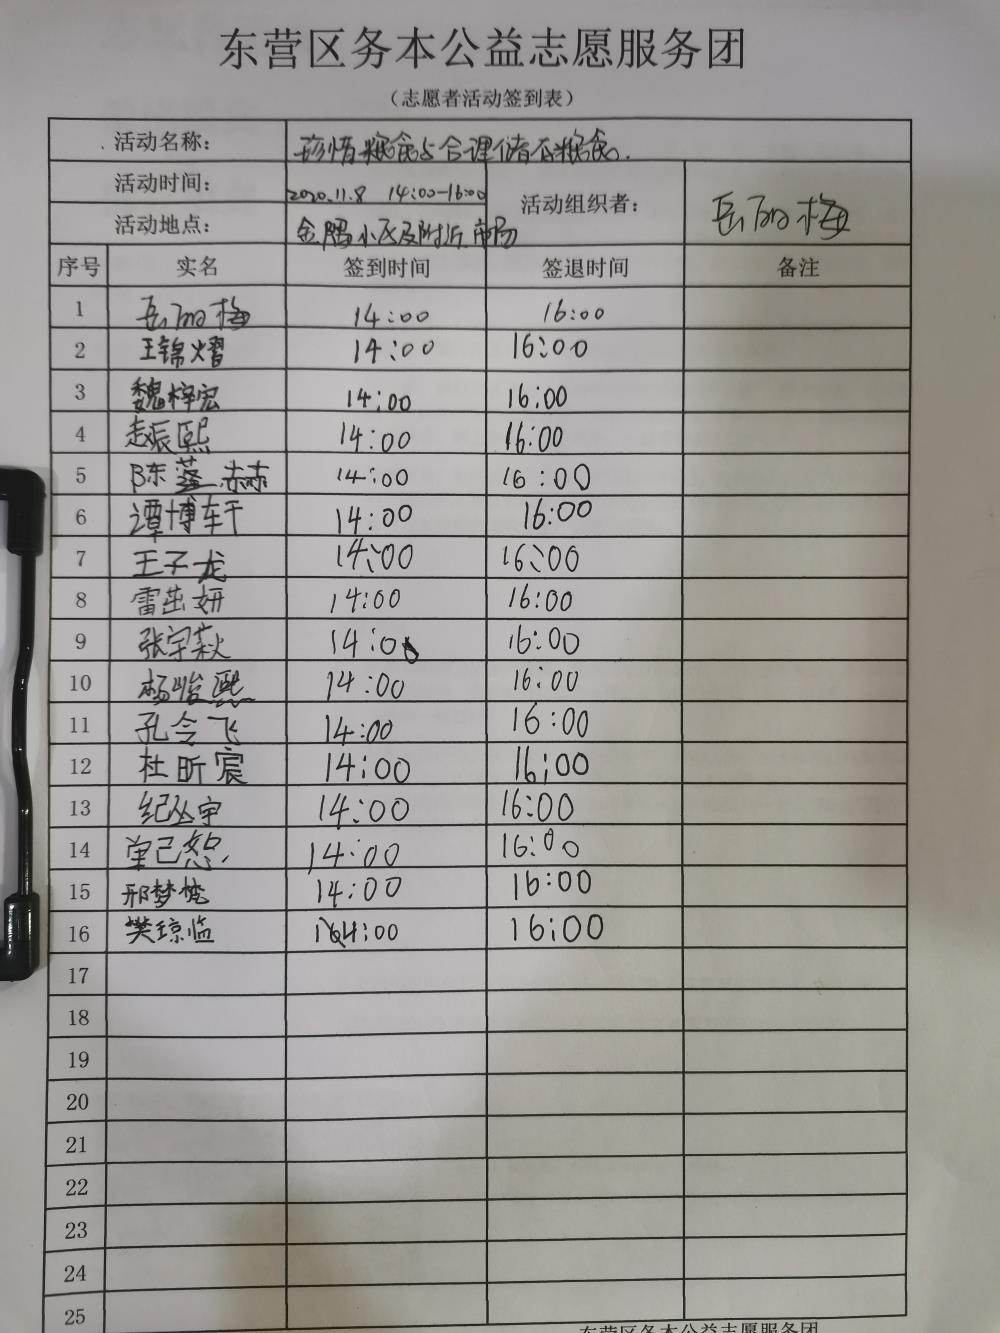 东营区务本公益志愿服务团
（志愿者活动签到表）
活动名称： 珍惜粮食与合理储存粮食.
活动时间： 2020.11.8 14:00-16:00 活动组织者： 岳丽梅
活动地点： 金隅小区及附近市场
序号 实名 签到时间 签退时间 备注
1 岳丽梅 14:00 16:00
2 王锦熠 14:00 16:00
3 魏梓宏 14:00 16:00
4 赵振熙 14:00 16:00
5 陈蓬赫 14:00 16:00
6 谭博轩 14:00 16:00
7 王子龙 14:00 16:00
8 雷茁妍 14:00 16:00
9 张宇 14:00 16:00
10 杨峻熙 14:00 16:00
11 孔令飞 14:00 16:00
12 杜昕宸 14:00 16:00
13 纪丛宇 14:00 16:00
14 单己恕 14:00 16:00
15 邢梦梵 14:00 16:00
16 樊琼临 14:00 16:00
17
18
19
20
21
22
23
24
25
东营区务本公益志愿服务团